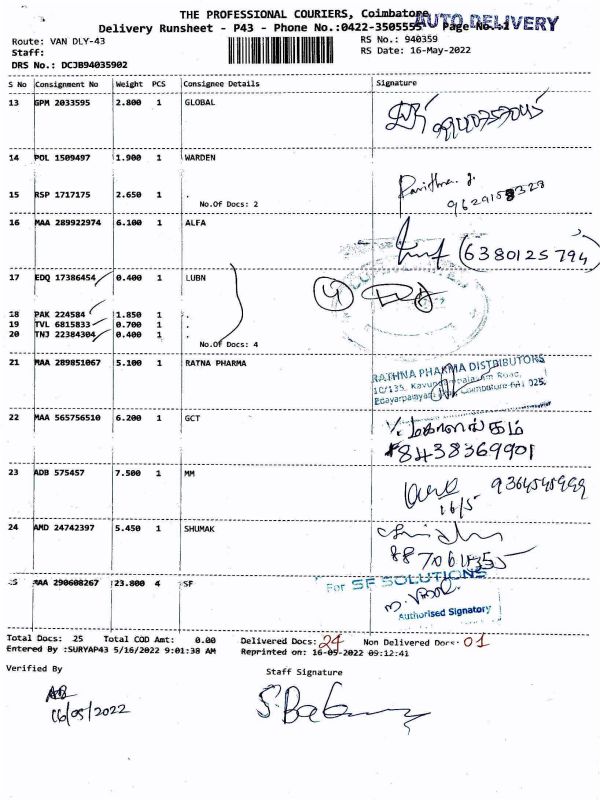 THE PROFESSIONAL COURIERS, Coimbatore
AUTO DELIVERY
Delivery Runsheet - P43 - Phone No.:0422-3505555 Page No.:1
Route: VAN DLY-43
RS No.: 940359
Staff:
RS Date: 16-May-2022
DRS No.: DCJB94035902
S No Consignment No Weight PCS Consignee Details Signature
13 GPM 2033595 2.800 1 GLOBAL
14 POL 1509497 1.900 1 WARDEN
15 RSP 1717175 2.650 1 .
No.Of Docs: 2
16 MAA 289922974 6.100 1 ALFA
(6380125794)
17 EDQ 17386454 0.400 1 LUBN
4
18 PAK 224584 1.850 1 .
19 TVL 6815833 0.700 1 .
20 TNJ 22384304 0.400 1 .
No.Of Docs: 4
21 MAA 289851067 5.100 1 RATNA PHARMA
RATHNA PHARMA DISTRIBUTORS
22 MAA 565756510 6.200 1 GCT
8438369901
23 ADB 575457 7.500 1 MM
16/5
24 AMD 24742397 5.450 1 SHUMAK
25 MAA 290608267 23.800 4 SF
For SF SOLUTIONS
Authorised Signatory
Total Docs: 25 Total COD Amt: 0.00 Delivered Docs: 24 Non Delivered Docs: 01
Entered By :SURYAP43 5/16/2022 9:01:38 AM Reprinted on: 16-05-2022 09:12:41
Verified By
Staff Signature
16/05/2022
S. Babu